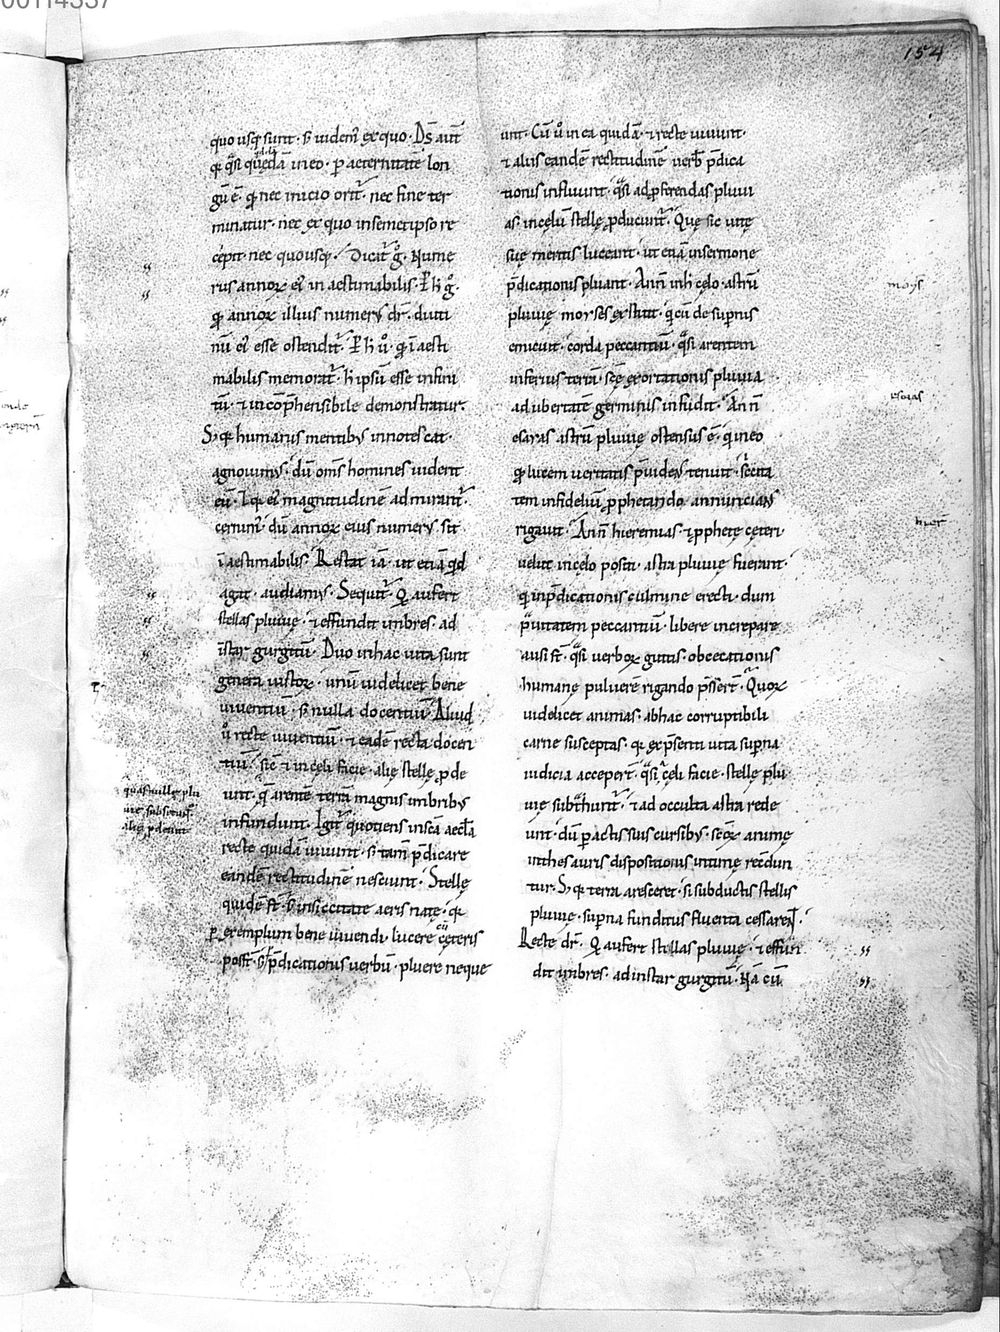 154
quo usq; sunt · s̄ uidem̄ ex quo · D̄s aut̄
qꝛ q̄si quędā in eo · p̄ aeternitatē lon
gū ē · qꝛ nec inicio orit᷑ · nec fine ter
minatur · nec ex quo in semetipso re
cepit · nec quousq; · Dicit᷑ g° · Nume
rus annoꝝ ei᷑ in aestimabilis ·
annoꝝ illius numerꝰ dr̄ · diuti
nū ei᷑ esse ostendit᷑ · aesti
mabilis memorat᷑ · ipsū esse infini
tū · ⁊ incōp̄hensibile demonstratur ·
S; qꝛ humanis mentibꝰ innotescat ·
agnouimꝰ · dū om̄s homines uident
eū · magnitudinē admirant᷑ ·
cernim᷑ · dū annoꝝ eius numerꝰ sit
īaestimabilis · Restat iā · ut etiā qd
agat · audiamꝰ · Sequit᷑ · Q̇ aufert
stellas pluuię · ⁊ effundit imbres · ad
īstar gurgitū · Duo in hac uita sunt
genera iustoꝝ · unū uidelicet bene
uiuentiū · s̄ nulla docentiū · Aliud
ů recte uiuentiū · ⁊ eadē recta docen
tiū · sic̄ ⁊ in cęli facie · alię stellę ꝓde
unt · q̄ arentē terrā magnis imbribꝰ
infundunt · Igit᷑ quotiens in scā aecl̄a
recte quidā uiuunt · s̄ tam̄ p̄dicare
eandē rectitudinē nesciunt · Stellę
quidē st̄ · s̄ in siccitate aeris natę · qꝛ
ꝑ exemplum bene uiuendi · lucere cęteris
poss̄t · s̄ p̄dicationis uerbū · pluere neque
unt · Cū ů in ea quidā · ⁊ recte uiuunt ·
⁊ aliis eandē rectitudinē uerb̄ p̄dica
tionis influunt · q̄si ad ꝓferendas pluui
as · in cęlū stellę ꝓducunt᷑ · Quę sic uitę
suę meritis luceant · ut etiā in sermone
p̄dicationis pluant · An̄n in h̄ cęlo · astrū
pluuię moyses extitit · q̇ cū de sup̄nis
emicuit · corda peccantiū · q̄si arentem
inferius terrā · scę exortationis pluuia
ad ubertatē germinis infudit · An̄n
esaias astrū pluuię ostensus ē · q̇ in eo
qꝛ lucem ueritatis p̄uidens tenuit · siccita
tem infideliū ꝓphetando annuncians
rigauit · An̄n hieremias · ⁊ ꝓphetę cęteri
uelut in cęlo positi · astra pluuię fuerant ·
q̇ in p̄dicationis culmine erecti · dum
p̄uitatem peccantiū · libere increpare
ausi st̄ · q̄si uerboꝝ guttis · obcecationis
humanę puluerē rigando p̄sser̄t · Quoꝝ
uidelicet animas · ab hac corruptibili
carne susceptas · qꝛ ex p̄senti uita sup̄na
iudicia acceper̄t · q̄si cęli facie · stellę plu
uię subt̄hunt᷑ · ⁊ ad occulta astra rede
unt · dū ꝑactis suis cursibꝰ · scōꝝ animę
in thesauris dispositionis intimę recōdun
tur · S; qꝛ terra aresceret · si subductis stellis
pluuię · sup̄na funditus fluenta cessarent ·
Recte dr̄ · Q̇ aufert stellas pluuię · ⁊ effun
dit imbres · ad instar gurgitū · Nā cū
moys
esaias
hierēm
q̄si stillę plu
uię subsecu
alię ꝓdeunt